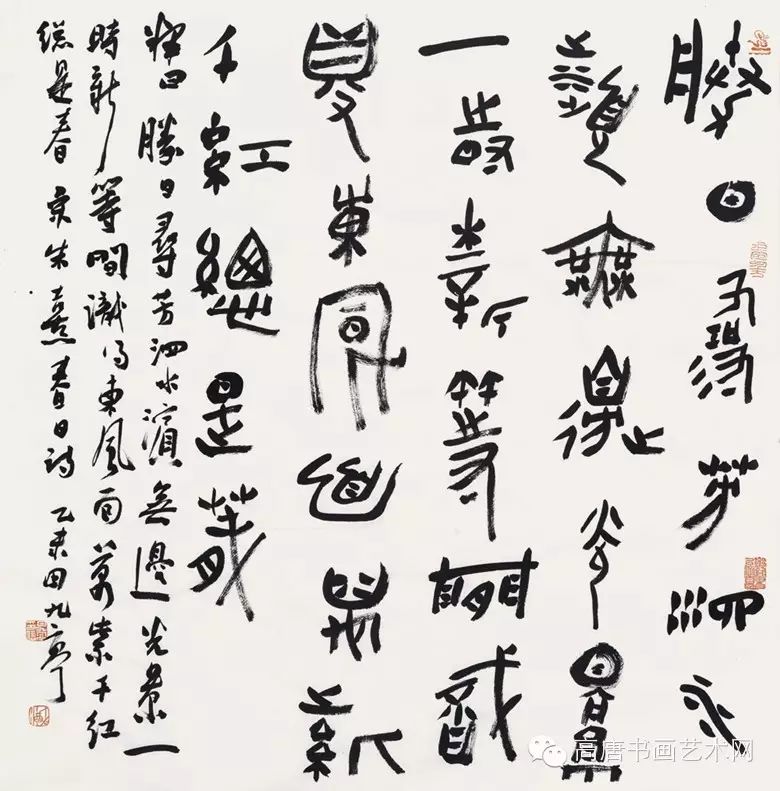 勝日尋芳泗水
濱無邊光景
一時新等閒識
得東風面萬紫
千紅總是春
釋曰勝日尋芳泗水濱無邊光景一
時新等閒識得東風面萬紫千紅
總是春宋朱熹春日詩乙未田九
高唐书画艺术网